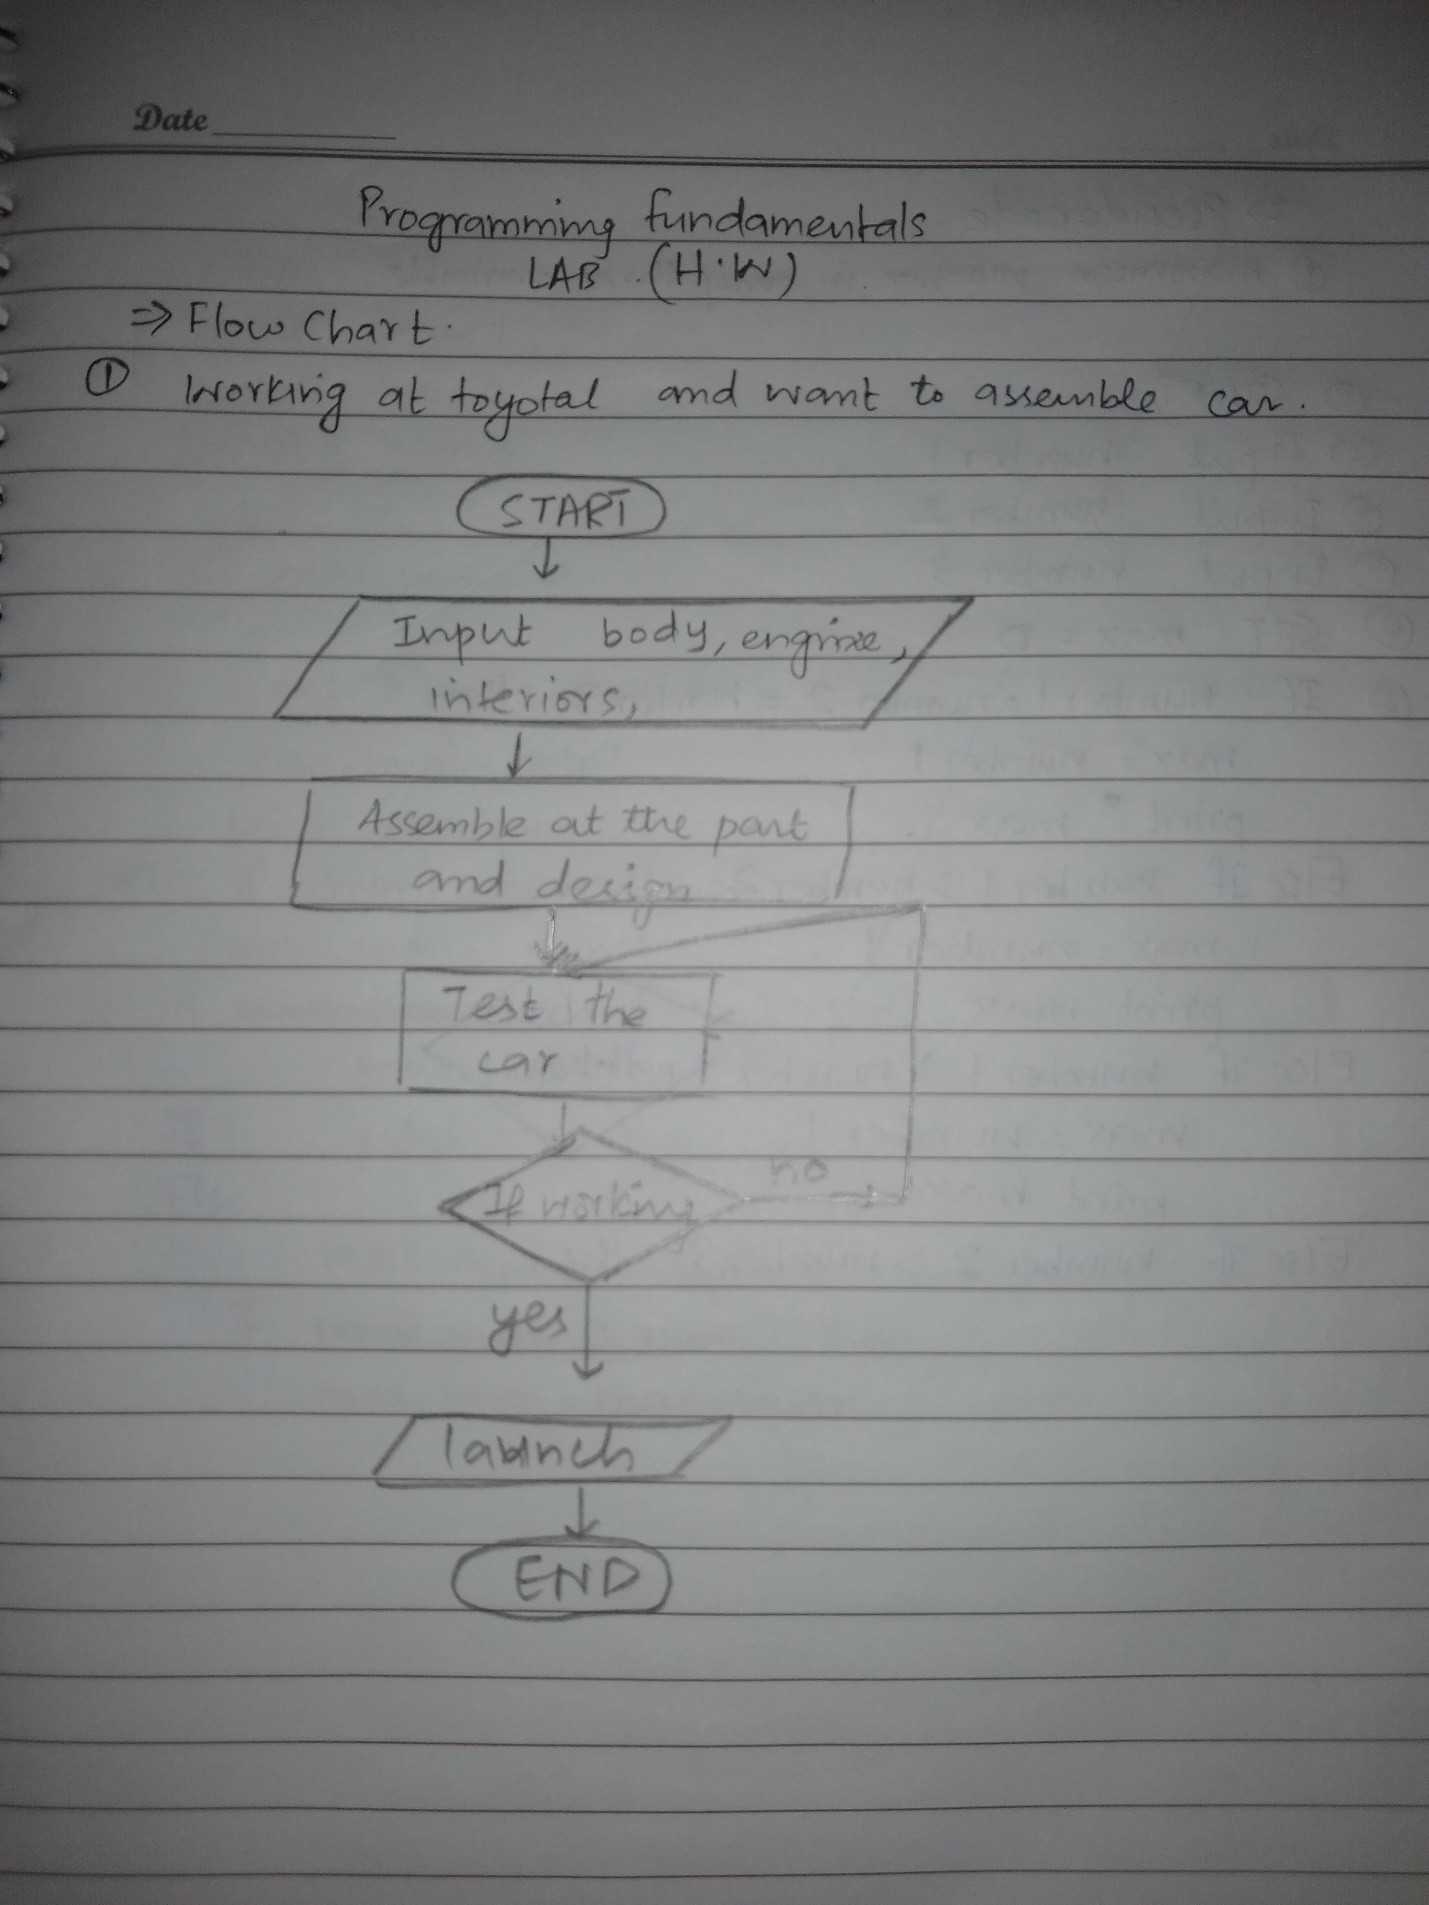 Date
Programming fundamentals
LAB. (H.W)
⇒ Flow Chart.
① Working at toyotal and want to assemble car.
START
Input body, engine,
interiors,
Assemble at the part
and design
Test the
car
no
If working
yes
launch
END